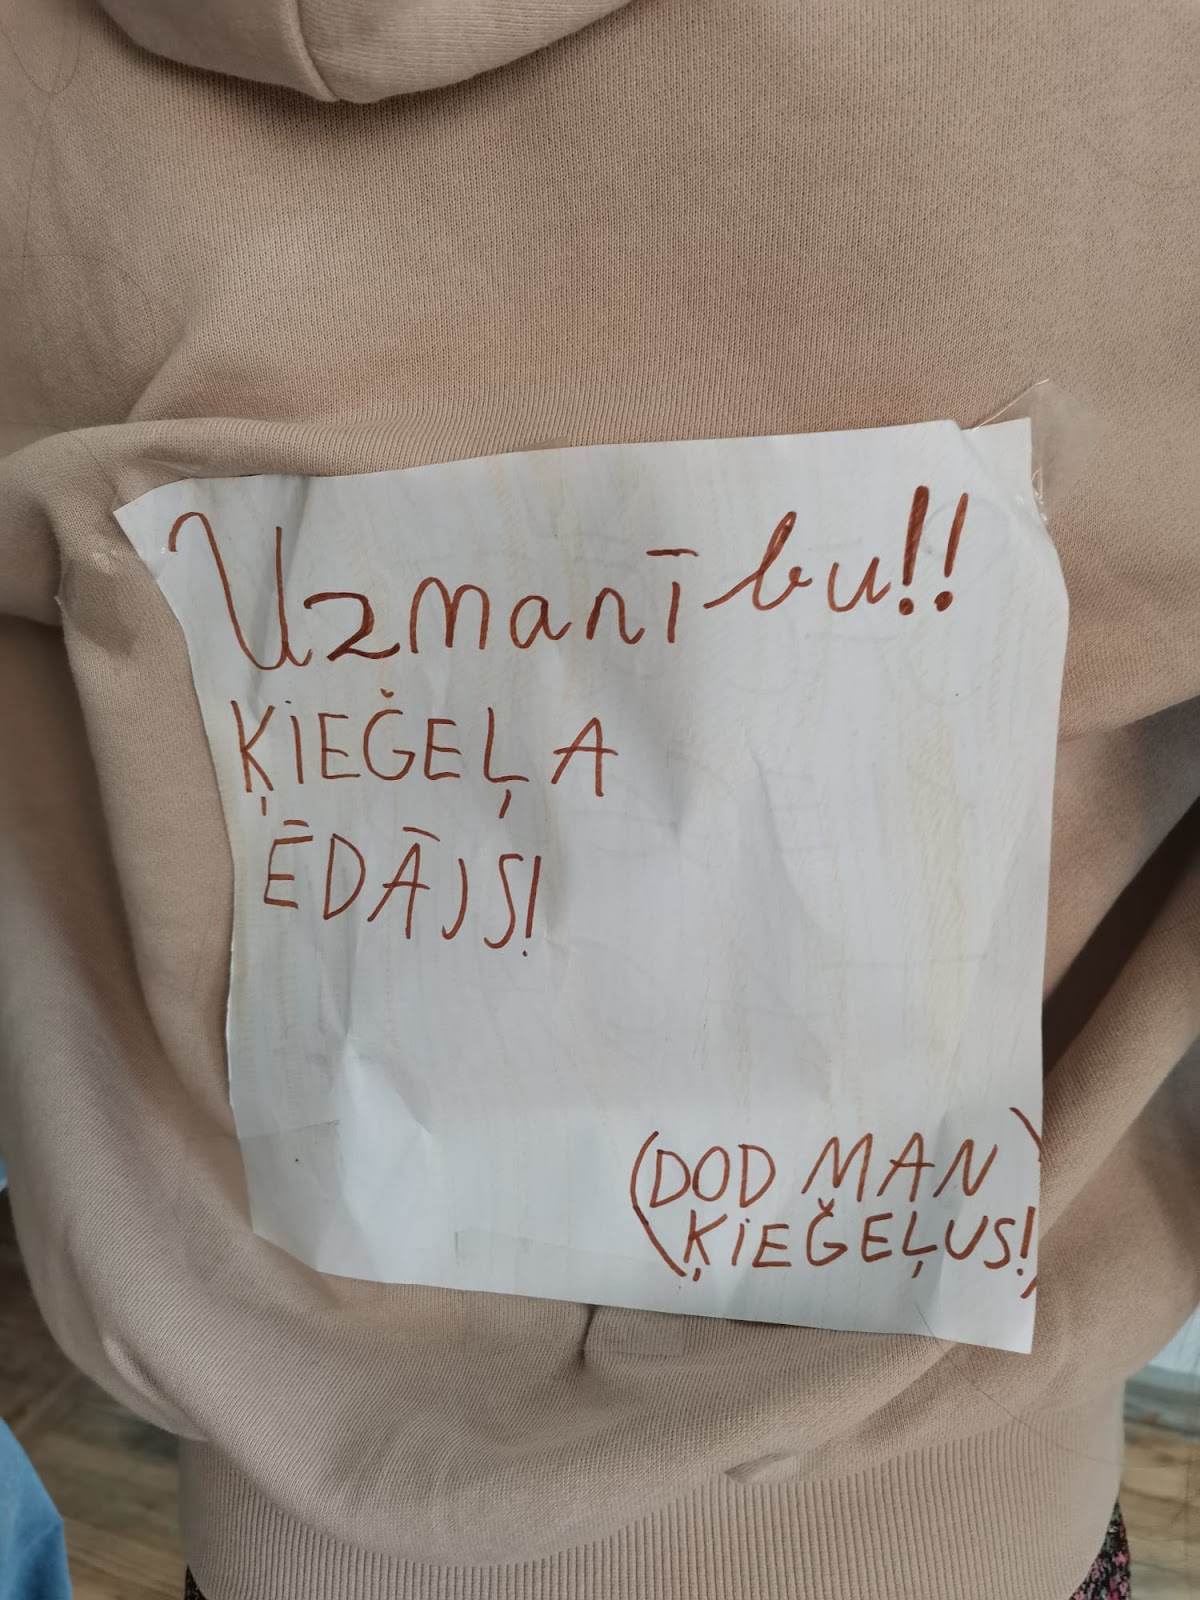 Uzmanību!!
ĶIEĞEĻA
ĒDĀJS!
(DOD MAN
ĶIEĞEĻUS!)